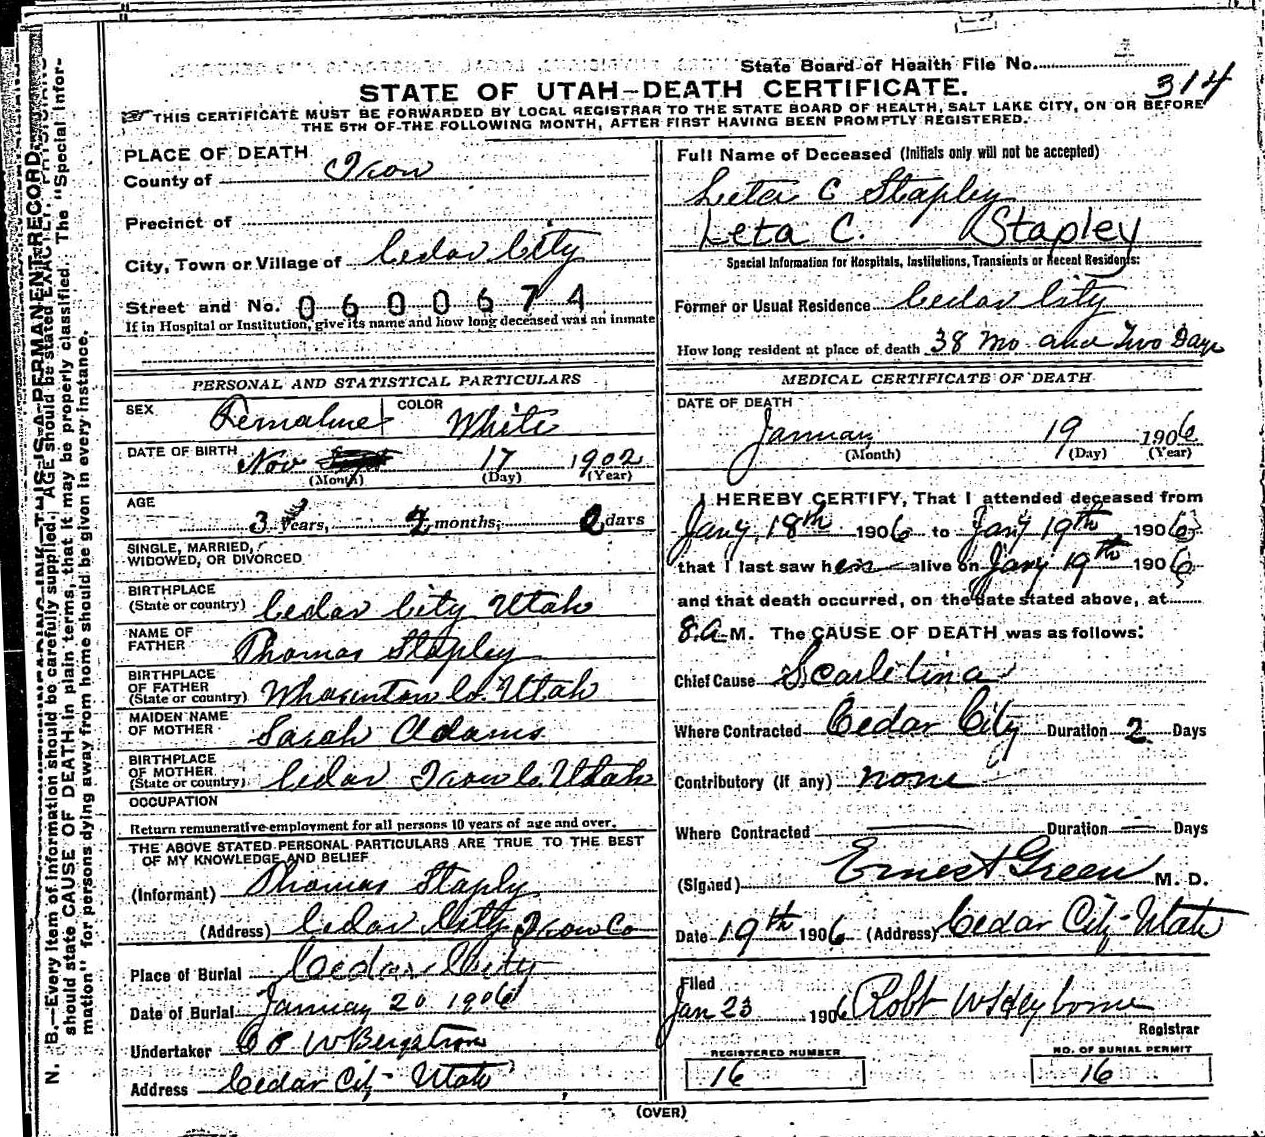 State Board of Health File No.
314
STATE OF UTAH—DEATH CERTIFICATE.
THIS CERTIFICATE MUST BE FORWARDED BY LOCAL REGISTRAR TO THE STATE BOARD OF HEALTH, SALT LAKE CITY, ON OR BEFORE
THE 5TH OF THE FOLLOWING MONTH, AFTER FIRST HAVING BEEN PROMPTLY REGISTERED.
PLACE OF DEATH
County of Iron
Precinct of
City, Town or Village of Cedar City
Street and No. 0600674
If in Hospital or Institution, give its name and how long deceased was an inmate
PERSONAL AND STATISTICAL PARTICULARS
SEX COLOR White
DATE OF BIRTH Nov 17 1902
(Month) (Day) (Year)
AGE
3 Years, 2 months, 2 days
SINGLE, MARRIED,
WIDOWED, OR DIVORCED
BIRTHPLACE
(State or country) Cedar City Utah
NAME OF
FATHER Thomas Stapley
BIRTHPLACE
OF FATHER
(State or country) Co. Utah
MAIDEN NAME
OF MOTHER Sarah Adams
BIRTHPLACE
OF MOTHER
(State or country) Cedar Iron Co. Utah
OCCUPATION
Return remunerative employment for all persons 10 years of age and over.
THE ABOVE STATED PERSONAL PARTICULARS ARE TRUE TO THE BEST
OF MY KNOWLEDGE AND BELIEF
(Informant) Thomas Staply
(Address) Cedar City Iron Co
Place of Burial Cedar City
Date of Burial January 20 1906
Undertaker W Bergstrom
Address Cedar City Utah
Full Name of Deceased (Initials only will not be accepted)
Leta C Stapley
Leta C. Stapley
Special Information for Hospitals, Institutions, Transients or Recent Residents:
Former or Usual Residence Cedar City
How long resident at place of death 38 Mo and Two Days
MEDICAL CERTIFICATE OF DEATH
DATE OF DEATH
January 19 1906
(Month) (Day) (Year)
I HEREBY CERTIFY, That I attended deceased from
Jany 18th 1906 to Jany 19th 1906
that I last saw her alive on Jany 19th 1906
and that death occurred, on the date stated above, at
8 A M. The CAUSE OF DEATH was as follows:
Chief Cause Scarletina
Where Contracted Cedar City Duration 2 Days
Contributory (if any) none
Where Contracted — Duration — Days
(Signed) Ernest Green M. D.
Date 19th 1906 (Address) Cedar City Utah
Filed
Jan 23 1906 Robt
Registrar
REGISTERED NUMBER
16
NO. OF BURIAL PERMIT
16
(OVER)
N. B.—Every item of information should be carefully supplied. AGE should be stated EXACTLY. PHYSICIANS
should state CAUSE OF DEATH in plain terms, that it may be properly classified. The "Special Infor-
mation" for persons dying away from home should be given in every instance.